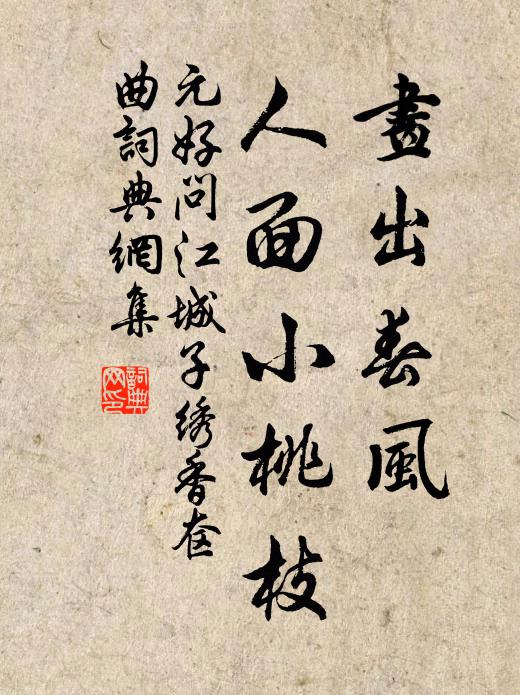 畫出春風
人面小桃枝
元好問江城子绣香奁
曲詞典網集
詞典
网印